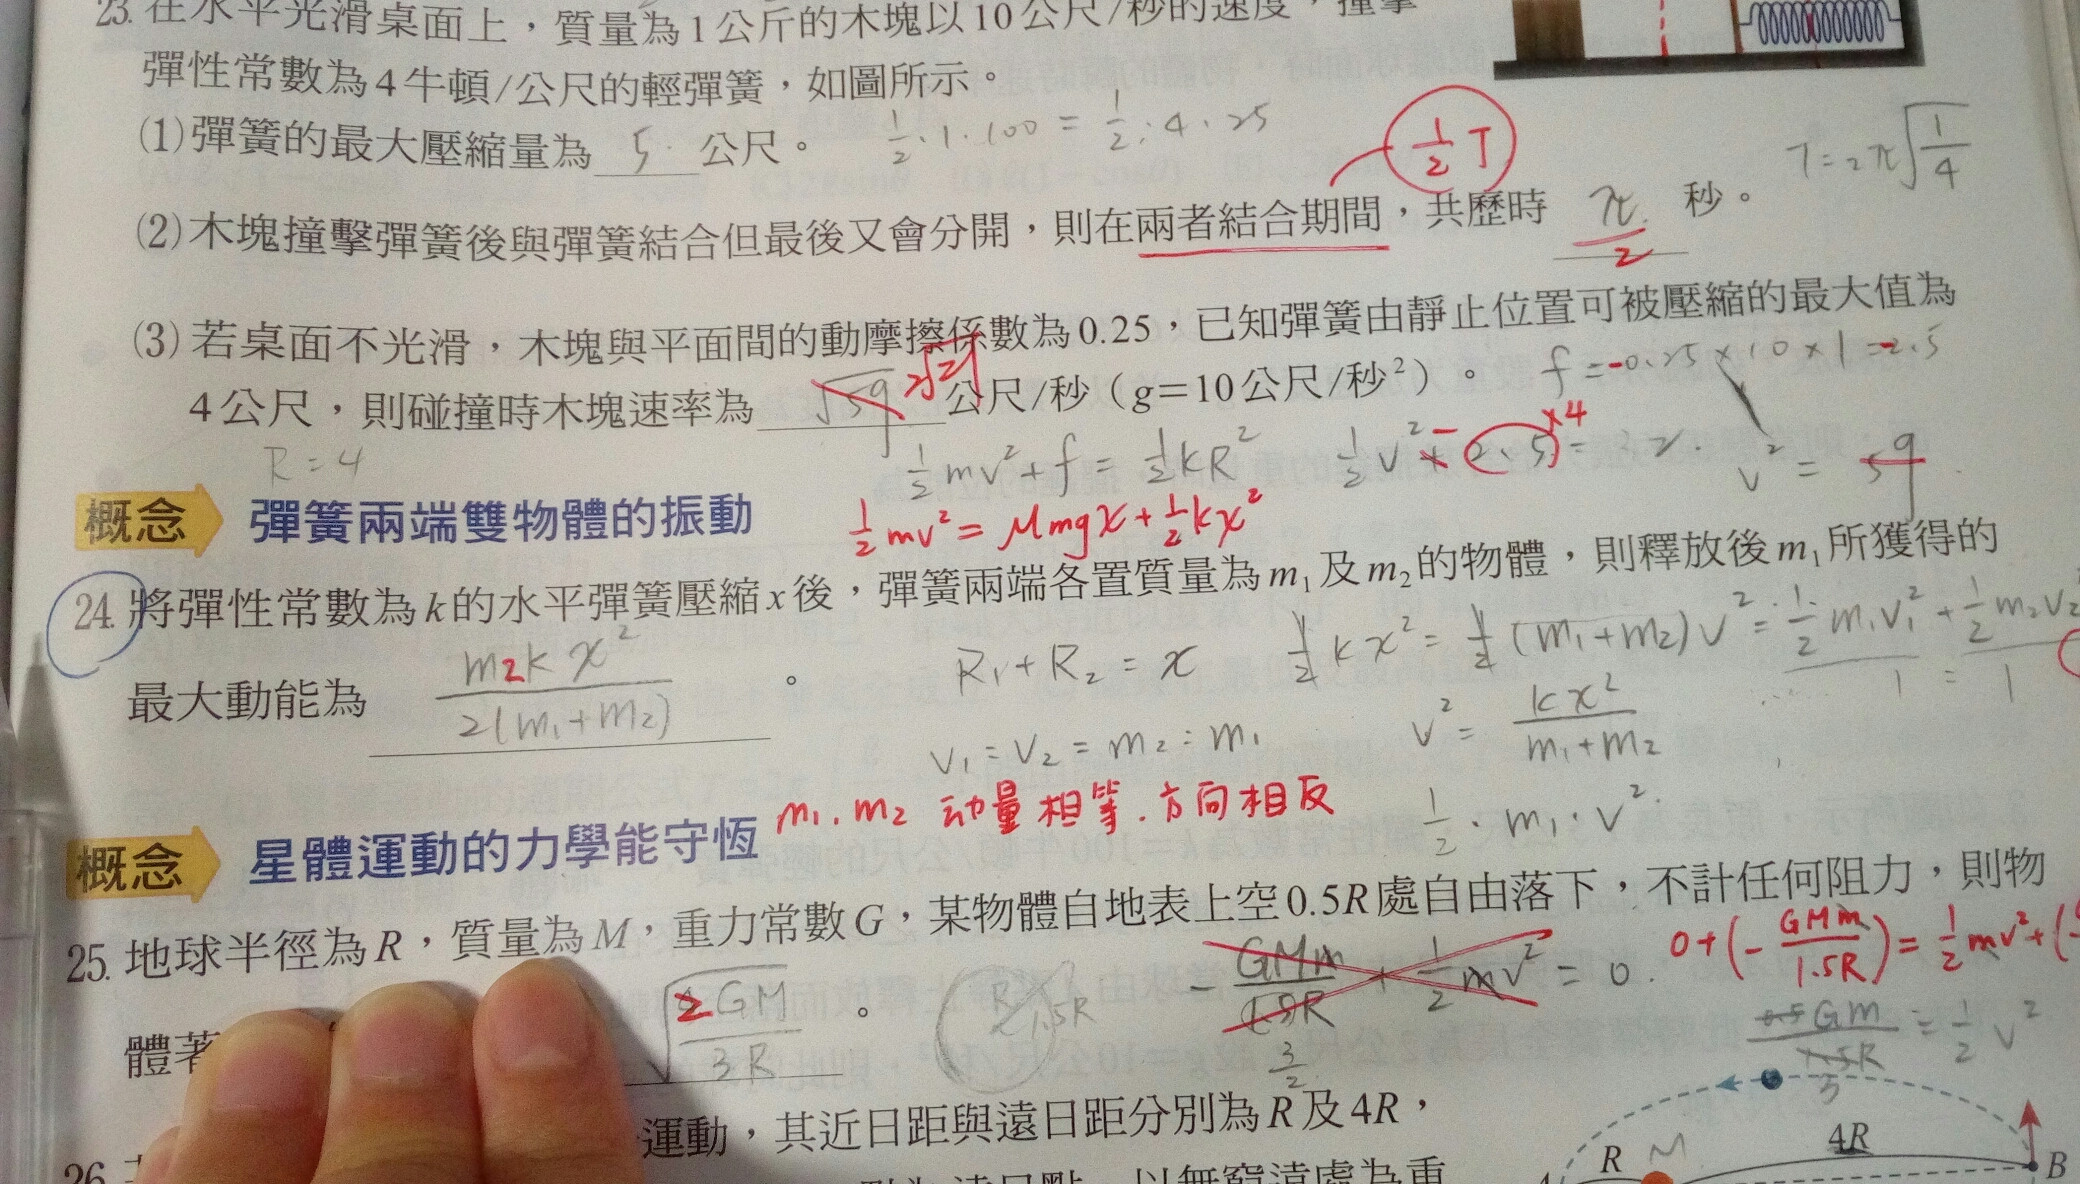 23. 在水平光滑桌面上，質量為1公斤的木塊以10公尺/秒的速度，撞擊
彈性常數為4牛頓/公尺的輕彈簧，如圖所示。
(1)彈簧的最大壓縮量為 5 公尺。 1/2·1·100 = 1/2·4·25
1/2 T
T=2π√(1/4)
(2)木塊撞擊彈簧後與彈簧結合但最後又會分開，則在兩者結合期間，共歷時 π/2 秒。
(3)若桌面不光滑，木塊與平面間的動摩擦係數為0.25，已知彈簧由靜止位置可被壓縮的最大值為
f=-0.25×10×1=-2.5
4公尺，則碰撞時木塊速率為 √59 2√21 公尺/秒（g=10公尺/秒²）。
R=4
1/2mv²+f=1/2kR²
v²=59
概念 彈簧兩端雙物體的振動
1/2mv²=μmgx+1/2kx²
24. 將彈性常數為k的水平彈簧壓縮x後，彈簧兩端各置質量為m₁及m₂的物體，則釋放後m₁所獲得的
最大動能為 m2kx²/2(m₁+m₂) 。
R₁+R₂=x
1/2kx²=1/2(m₁+m₂)v²=1/2m₁v₁²+1/2m₂v₂
1=1
v₁=v₂=m₂=m₁
v²=kx²/(m₁+m₂)
m₁.m₂ 动量相等.方向相反
1/2·m₁·v²
概念 星體運動的力學能守恆
25. 地球半徑為R，質量為M，重力常數G，某物體自地表上空0.5R處自由落下，不計任何阻力，則物
-GMm/1.5R+1/2mv²=0.
0+(-GMm/1.5R)=1/2mv²+(
3/2
體著 √(2GM/3R) 。
R 1.5R
GM/3=1/2v²
運動，其近日距與遠日距分別為R及4R，
26.
以無窮遠處為重
R M 4R B